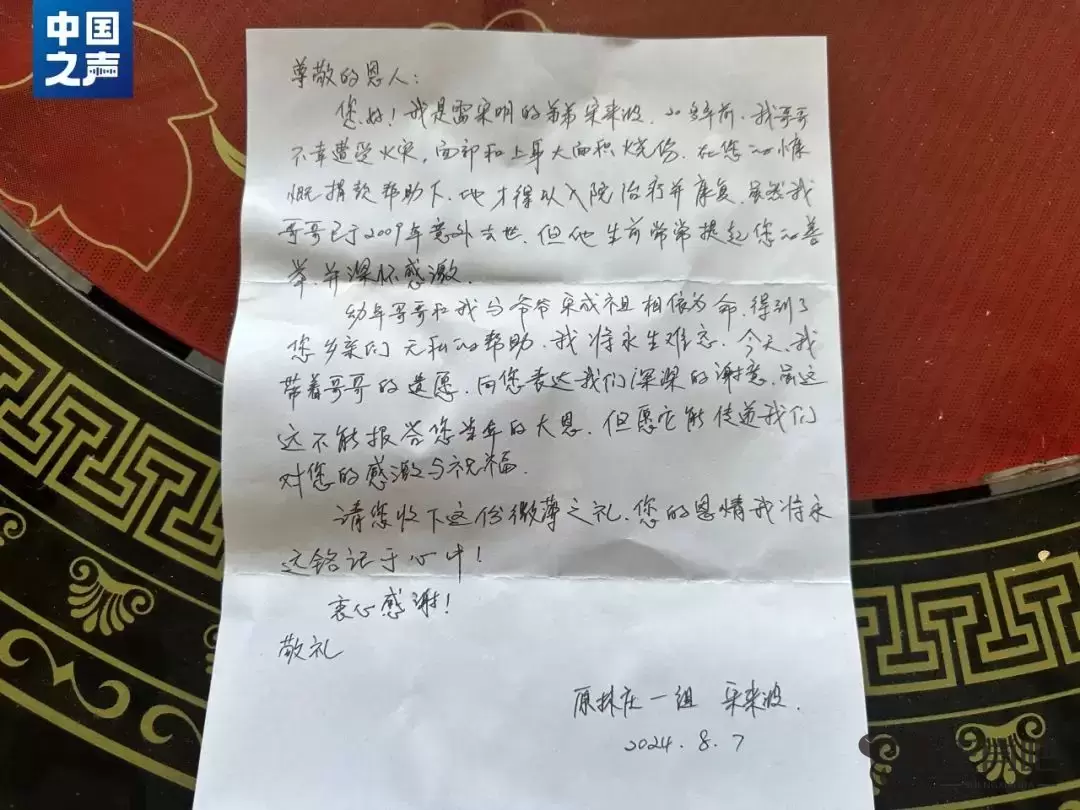 中国
之声
尊敬的恩人：
您好！我是雷宋明的弟弟宋来波，20多年前，我哥哥
不幸遭受火灾，面部和上身大面积烧伤，在您的慷
慨捐款帮助下，他才得以入院治疗并康复，虽然我
哥哥已于2009年意外去世，但他生前常常提起您的善
举，并深怀感激。
幼年哥哥和我与爷爷宋成祖相依为命，得到了
您乡亲们无私的帮助，我将永生难忘，今天，我
带着哥哥的遗愿，向您表达我们深深的谢意，虽这
这不能报答您当年的大恩，但愿它能传递我们
对您的感激与祝福。
请您收下这份微薄之礼，您的恩情我将永
远铭记于心中！
衷心感谢！
敬礼
原林庄一组 宋来波
2024.8.7